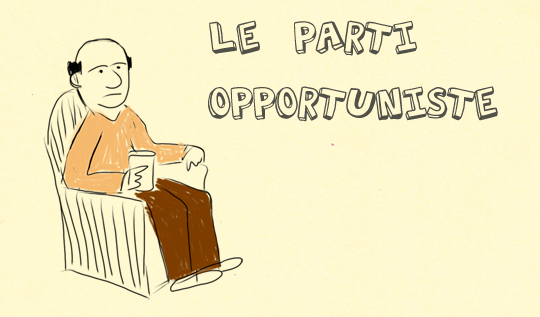 LE PARTI
OPPORTUNISTE